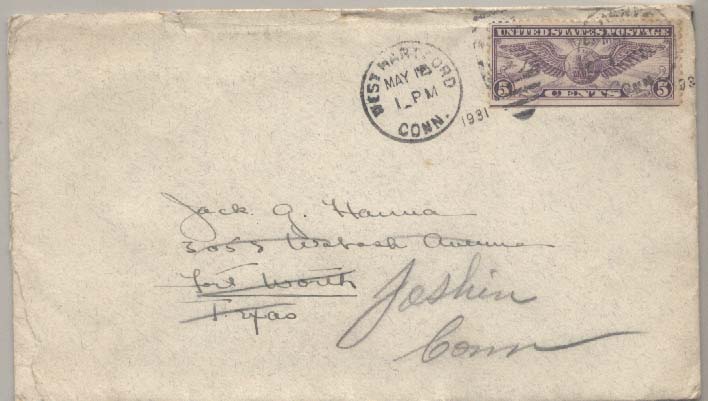 UNITED STATES POSTAGE
5 CENTS 5
WEST HARTFORD
MAY
1 PM
CONN.
1931
Jack G. Hanna
Wabash Avenue
Fort Worth
Texas
Conn